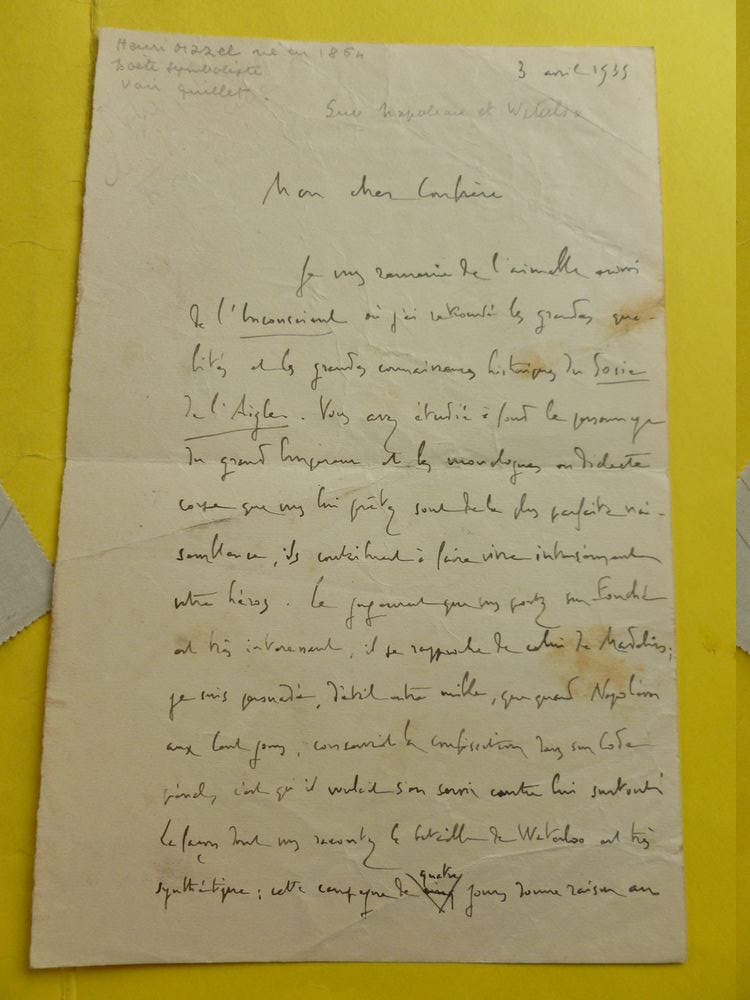 Henri Mazel né en 1864
Poète symboliste
Voir Guillet.
3 avril 1935
Sur Napoléon et Waterloo
Mon cher Confrère
Je vous remercie de l'aimable envoi
de l'Inconscient où j'ai retrouvé les grandes qua-
lités et les grandes connaissances historiques du Sosie
de l'Aigle. Vous avez étudié à fond le personnage
du grand Empereur et les monologues en dialecte
corse que vous lui prêtez sont de la plus parfaite vrai-
semblance, ils contribuent à faire vivre intensément
votre héros. Le jugement que vous portez sur Fouché
est très intéressant, il se rapproche de celui de Madelin;
je suis persuadé, détail entre mille, que quand Napoléon
aux Cent jours, conservait la confiscation dans son Code
pénal, c'est qu'il voulait s'en servir contre lui surtout!
La façon dont vous racontez la bataille de Waterloo est très
synthétique; cette campagne de quatre jours donne raison au